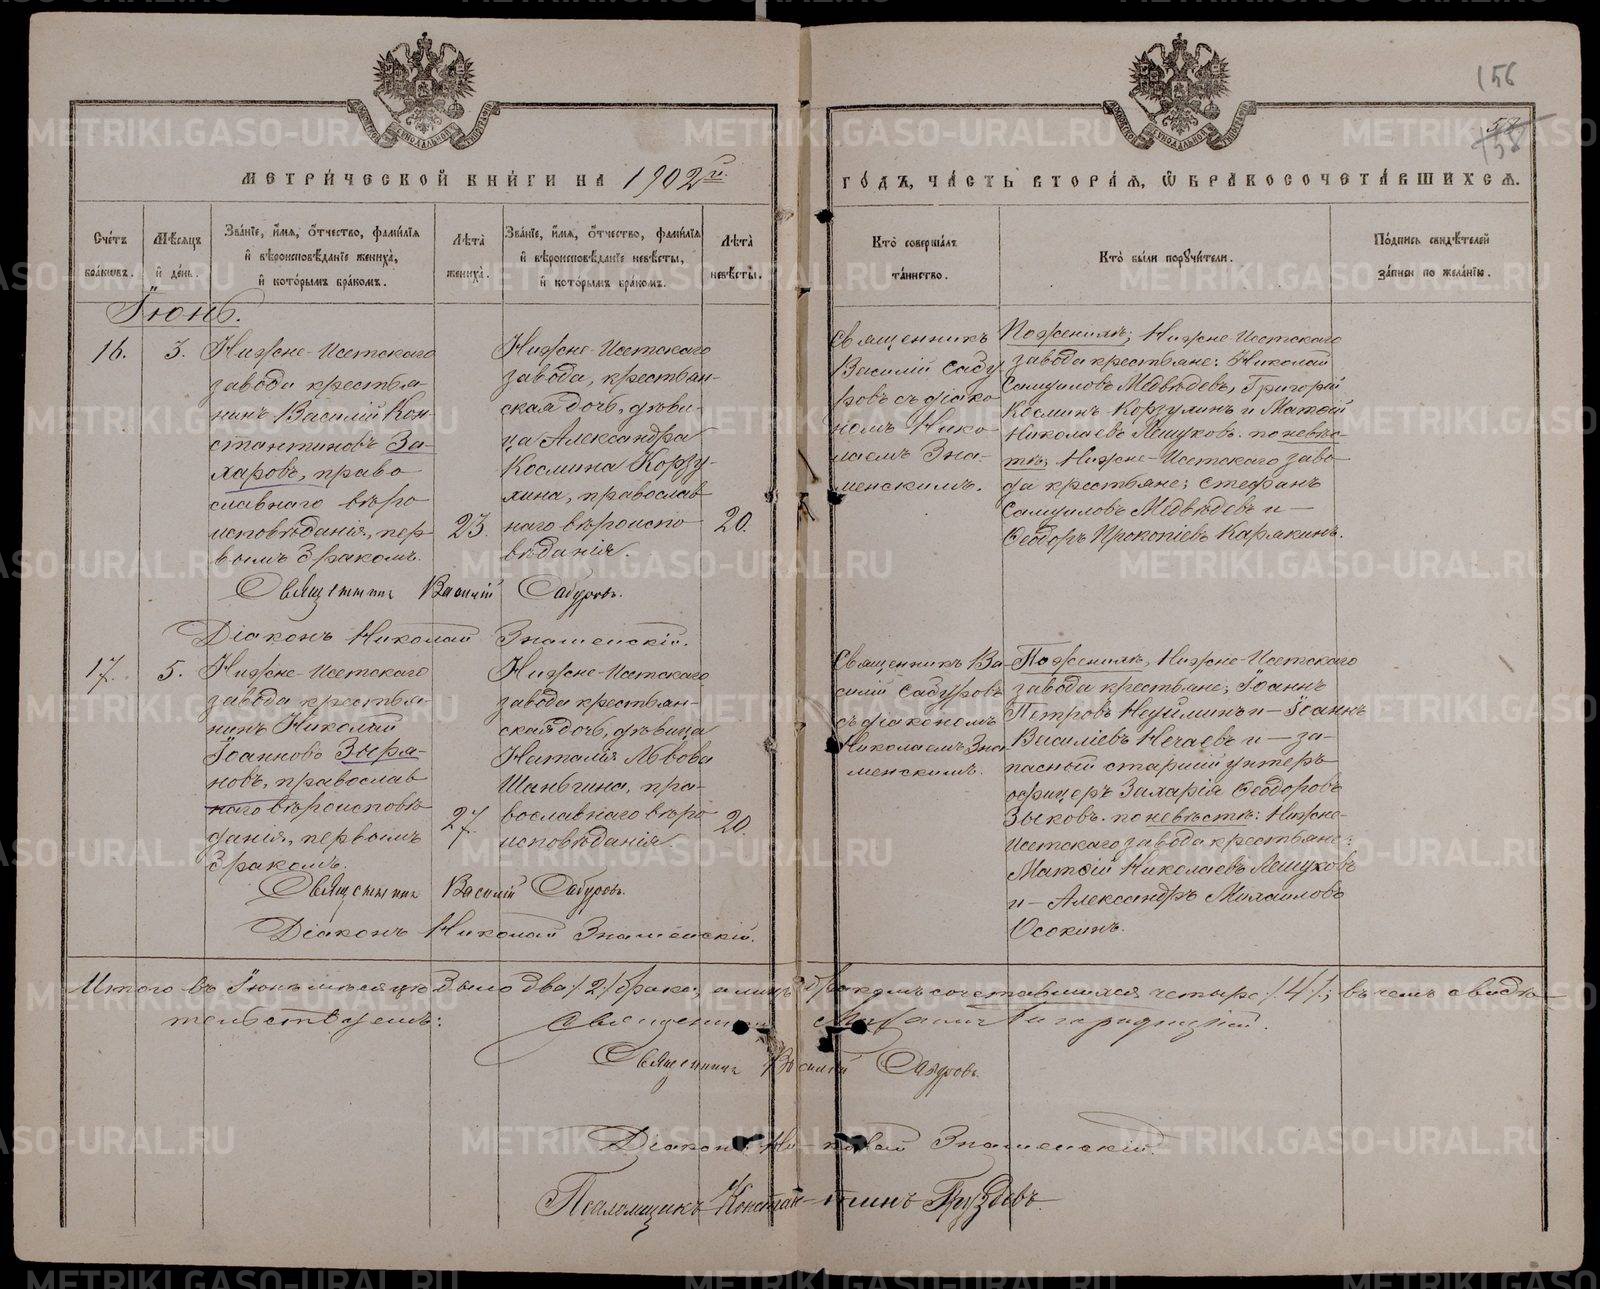 156
58
МЕТРИЧЕСКОЙ КНИГИ НА 1902й. ГОДЪ, ЧАСТЬ ВТОРАЯ, Ѡ БРАКОСОЧЕТАВШИХСЯ.
Счетъ браковъ.
Мѣсяцъ и день.
Званіе, имя, отчество, фамилія и вѣроисповѣданіе жениха, и которымъ бракомъ.
Лѣта жениха.
Званіе, имя, отчество, фамилія и вѣроисповѣданіе невѣсты, и которымъ бракомъ.
Лѣта невѣсты.
Кто совершалъ таинство.
Кто были поручители.
Подпись свидѣтелей записи по желанію.
Іюнь.
16.
3.
Нижне-Исетскаго
завода крестья-
нинъ Василій Кон-
стантиновъ За-
харовъ, право
славнаго вѣро
исповѣданія, пер
вымъ бракомъ.
23.
Нижне-Исетскаго
завода, крестьян-
ская дочь, дѣви-
ца Александра
Космина Корзу-
хина, православ
наго вѣроиспо
вѣданія.
20.
Священникъ
Василій Сабу
ровъ съ діако
номъ Нико
лаемъ Зна-
менскимъ.
По женихѣ; Нижне-Исетскаго
завода крестьяне: Николай
Самуиловъ Медвѣдевъ, Григорій
Косминъ Корзухинъ и Матѳій
Николаевъ Лешуковъ. по невѣс-
тѣ; Нижне-Исетскаго заво-
да крестьяне; Стефанъ
Самуиловъ Медвѣдевъ и —
Ѳеодоръ Прокопіевъ Карякинъ.
Священникъ Василій Сабуровъ.
Діаконъ Николай Знаменскій.
17.
5.
Нижне-Исетскаго
завода крестья-
нинъ Николай
Іоанновъ Зыря-
новъ, православ
наго вѣроисповѣ
данія, первымъ
бракомъ.
27.
Нижне-Исетскаго
завода крестьян-
ская дочь, дѣвица
Наталія Львова
Шаньгина, пра-
вославнаго вѣро
исповѣданія
20.
Священникъ Ва-
силій Сабуровъ
съ діакономъ
Николаемъ Зна
менскимъ.
По женихѣ, Нижне-Исетскаго
завода крестьяне; Іоаннъ
Петровъ Неуйминъ и — Іоаннъ
Васильевъ Нечаевъ и — за-
пасный старшій унтеръ
офицеръ Захарія Ѳеодоровъ
Зыковъ. по невѣстѣ: Нижне-
Исетскаго завода крестьяне:
Матѳій Николаевъ Лешуковъ
и — Александръ Михаиловъ
Осокинъ.
Священникъ Василій Сабуровъ.
Діаконъ Николай Знаменскій.
Итого въ Іюнѣ мѣсяцѣ было два /2/ брака, а лицъ бракомъ сочетавшихся четыре /4/; въ чемъ свидѣ-
тельствуемъ: Священникъ
Священникъ Василій Сабуровъ.
Діаконъ Николай Знаменскій.
Псаломщикъ Константинъ Груздевъ.
METRIKI.GASO-URAL.RU